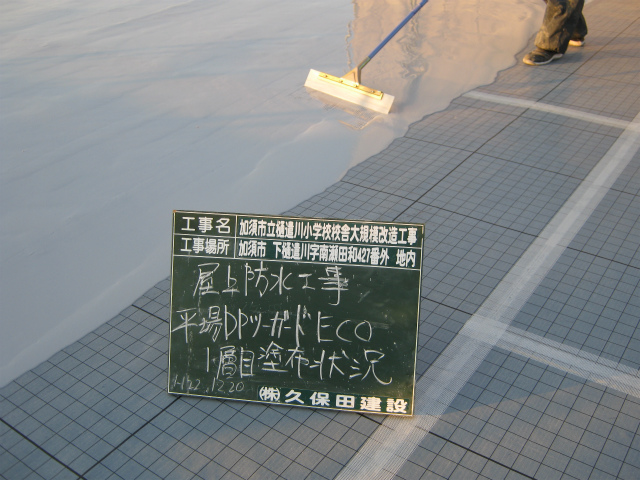 工事名 加須市立樋遣川小学校校舎大規模改造工事
工事場所 加須市 下樋遣川字南瀬田和427番外 地内
屋上防水工事
平場DPツーガードECO
1層目塗布状況
H22.12.20
㈱久保田建設